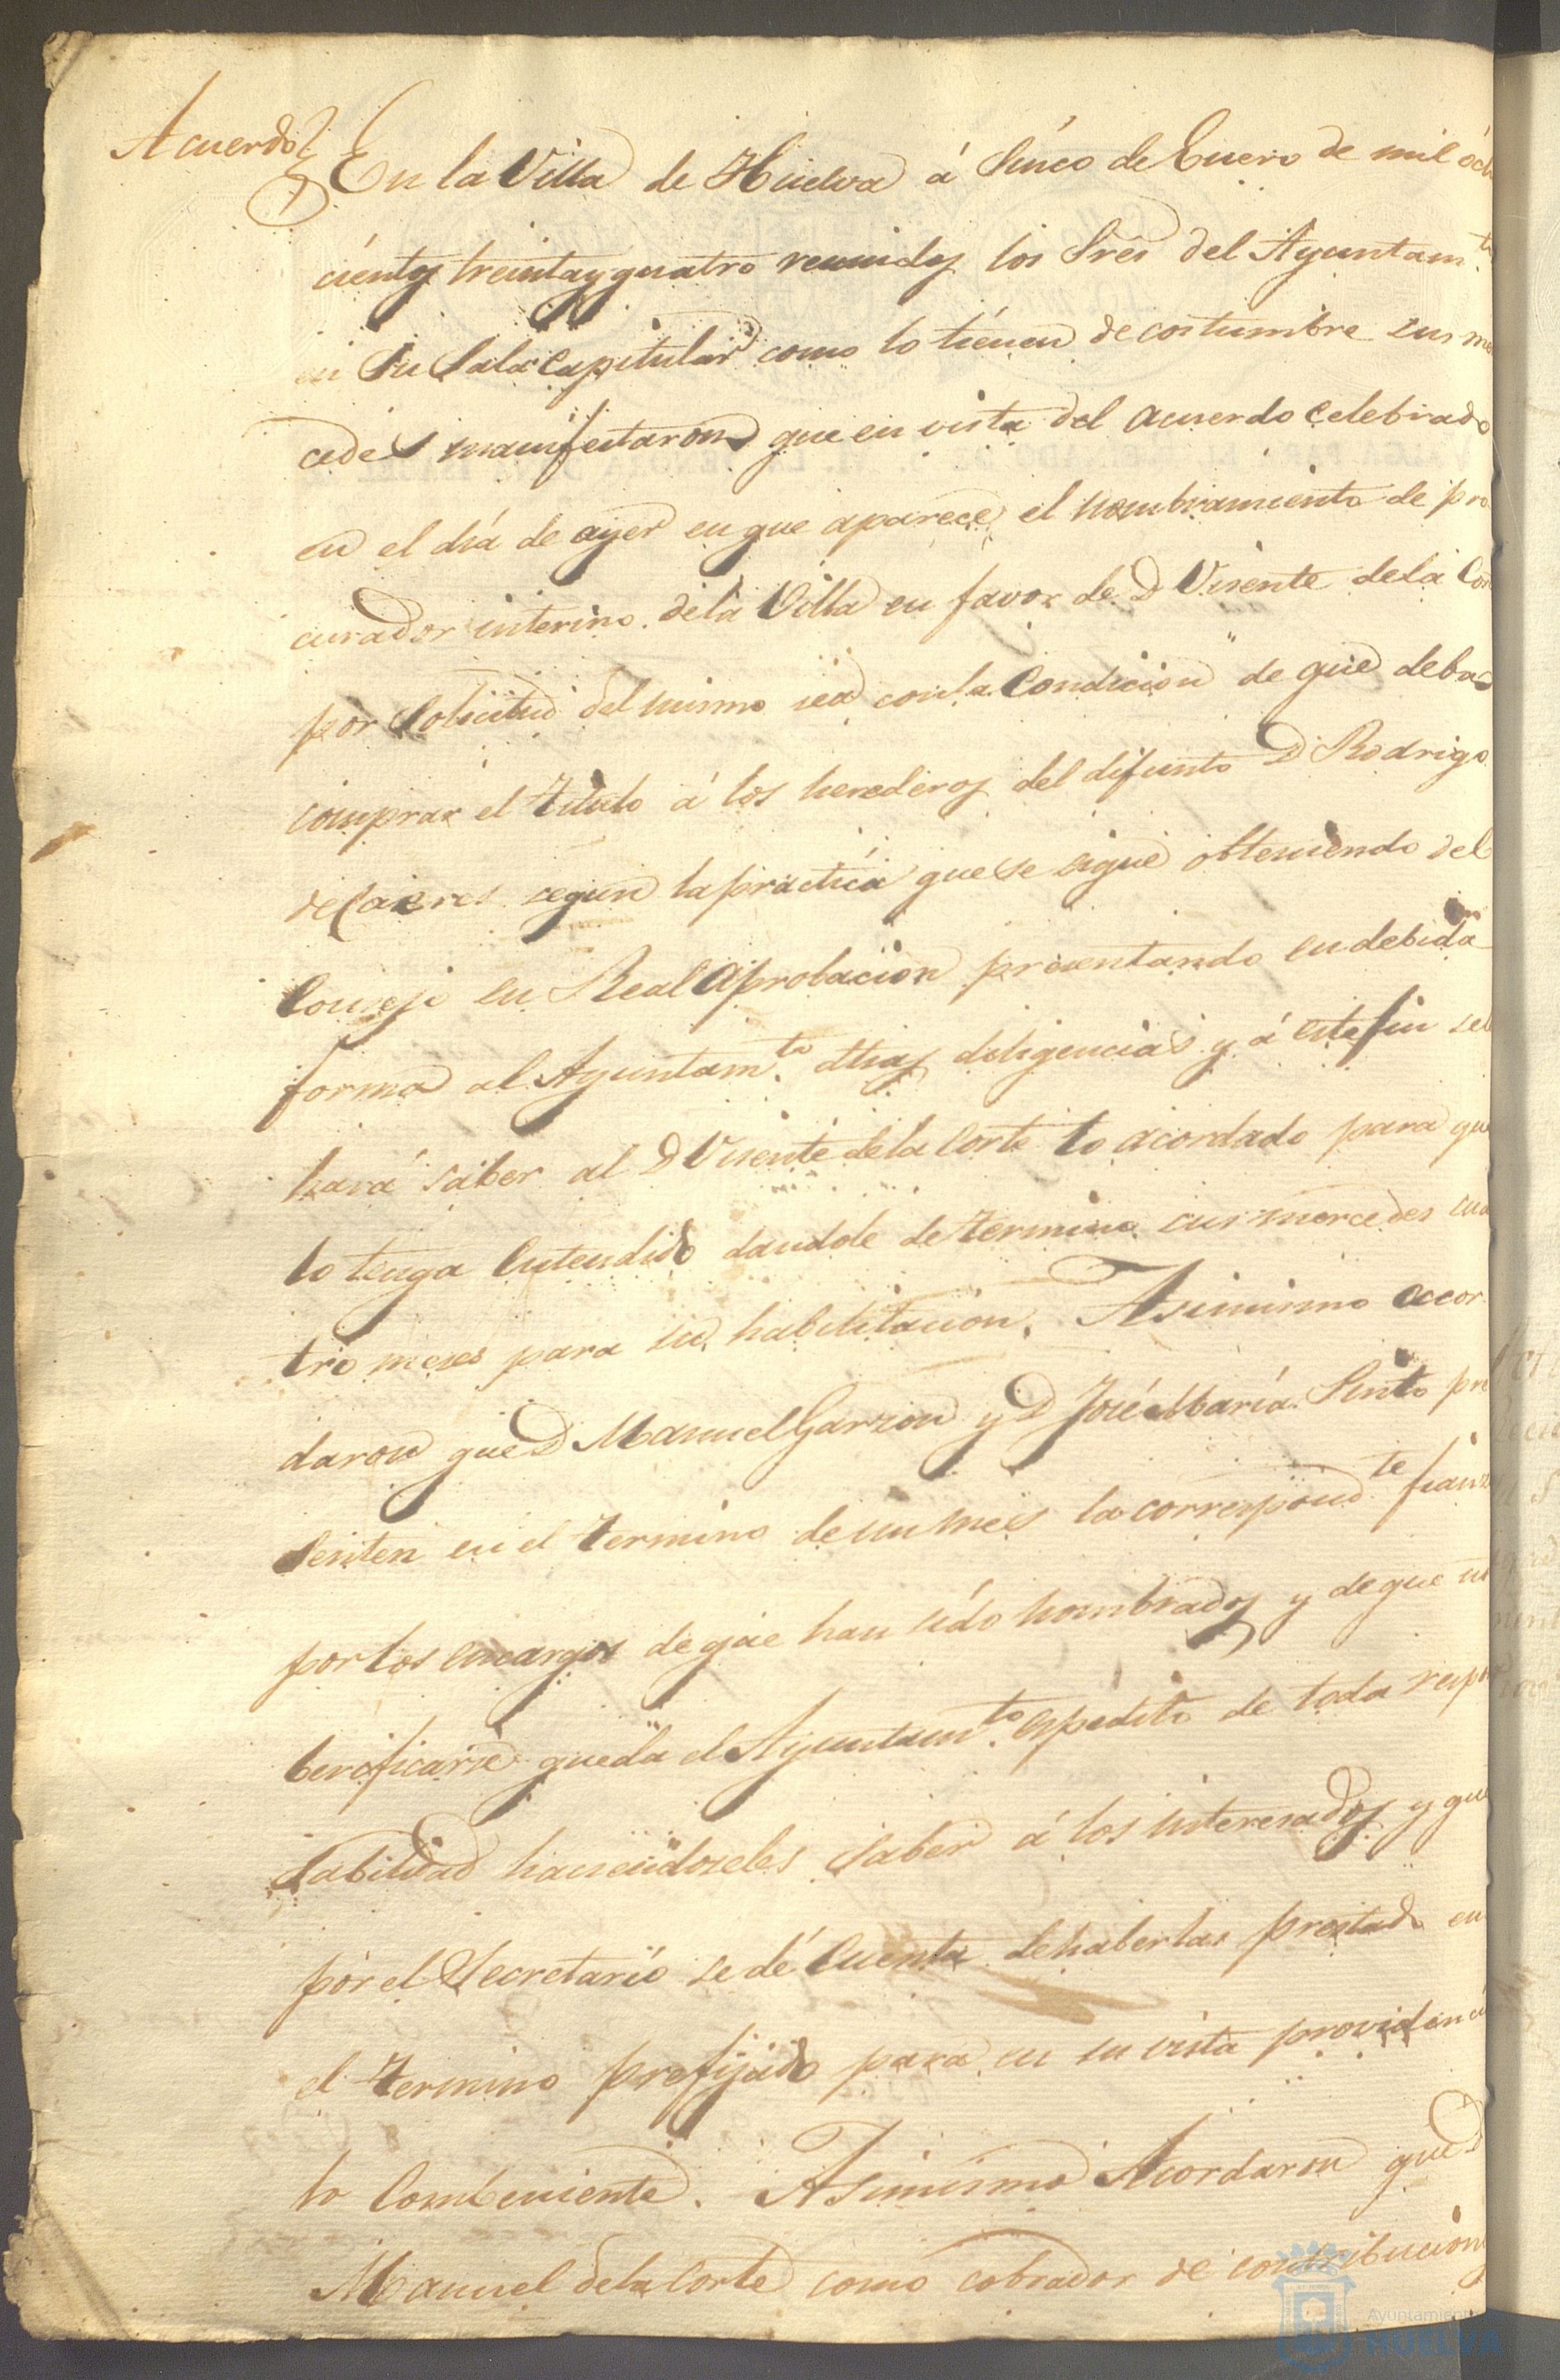 Acuerdo
En la Villa de Huelva á Sinco de Enero de mil ócho
cientos treinta y quatro reunidos los Sres del Ayuntam.to
en su Sala Capitular como lo tienen de costumbre sus mer
cedes manifestaron que en vista del acuerdo celebrado
en el día de ayer en que aparece el nombramiento de pro
curador interino de la Villa en favor de D Visente de la Cor
por solicitud del mismo sea con la Condicion de que deba
comprar el titulo á los herederos del difunto D Rodrigo
de Caseres segun la práctica que se sigue obteniendo del
Consejo su Real Aprobacion presentando en debida
forma al Ayuntam.to dhas diligencias y á este fin se
hará saber al D Visente de la Corte lo acordado para que
lo tenga Entendido dandole de termino sus mercedes cua
tro meses para su habilitacion. Asimismo acor
daron que D Manuel Garzon y D José María Pinto pre
senten en el termino de un mes la correspond.te fianz
por los encargos de que han sido nombrados y de que no
berificarse queda el Ayuntam.to espedito de toda respon
sabilidad haciendoseles saber á los interesados y que
por el Secretario se dé Cuenta de haberlas prestado en
el termino prefijado para en su vista providenciar
lo Combeniente. Asimismo Acordaron que D
Manuel de la Corte como cobrador de contribuciones
Ayuntamiento
HUELVA